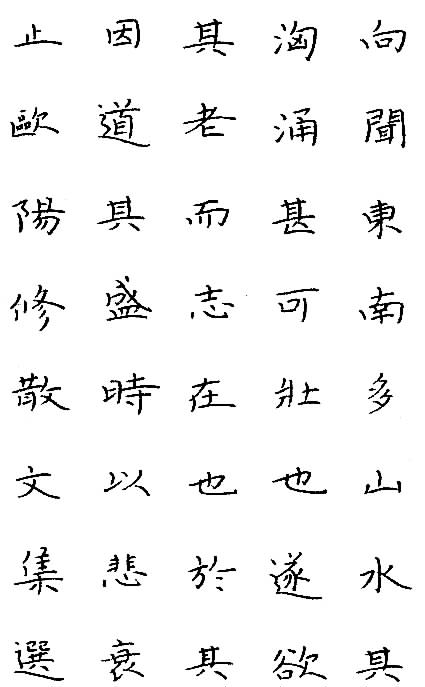 向聞東南多山水其
洶涌甚可壯也遂欲
其老而志在也於其
因道其盛時以悲衰
止歐陽修散文集選